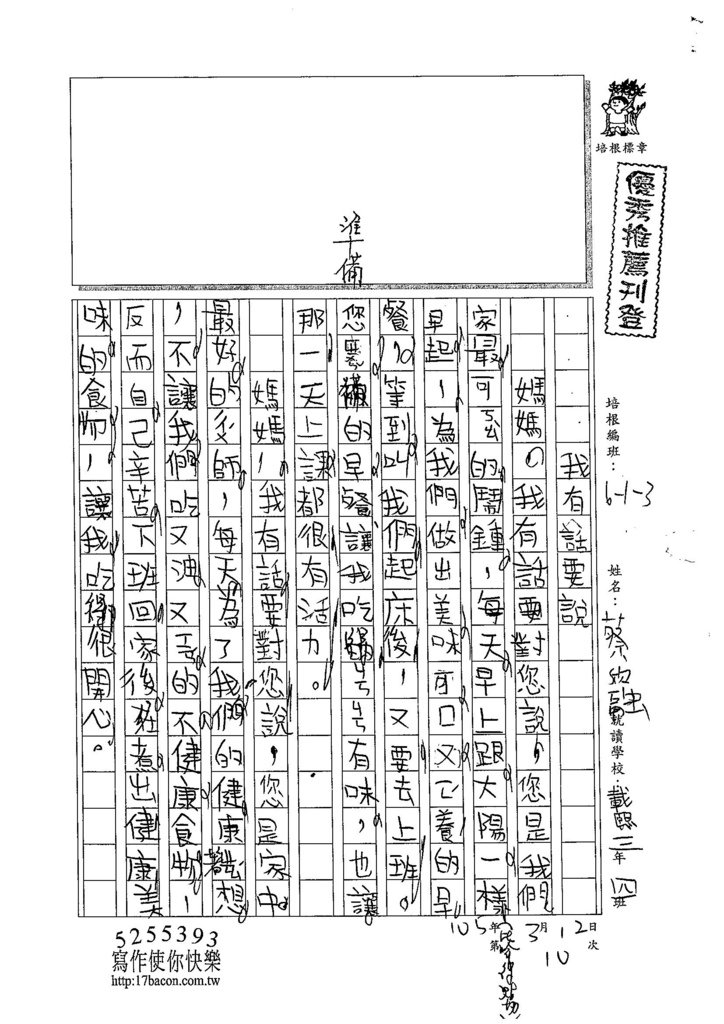 培根標章
優秀推薦刊登
準備
培根編班：6-1-3
姓名：蔡
就讀學校：載熙 三年 四班
105年 3月 12日
第 10 次
我有話要說
媽媽，我有話要對您說，您是我們
家最可ㄎㄠ的鬧鐘，每天早上跟太陽一樣
早起，為我們做出美味可口又ㄧㄥ養的早
餐。等到叫我們起床後，又要去上班。
您準備的早餐讓我吃ㄐㄧㄣㄐㄧㄣ有味，也讓
那一天上課都很有活力。
媽媽，我有話要對您說，您是家中
最好的ㄔㄨ師，每天為了我們的健康著想
，不讓我們吃又油又ㄒㄧㄢ的不健康食物，
反而自己辛苦下班回家後在煮出健康美
味的食物，讓我吃得很開心。
5255393
寫作使你快樂
http:17bacon.com.tw